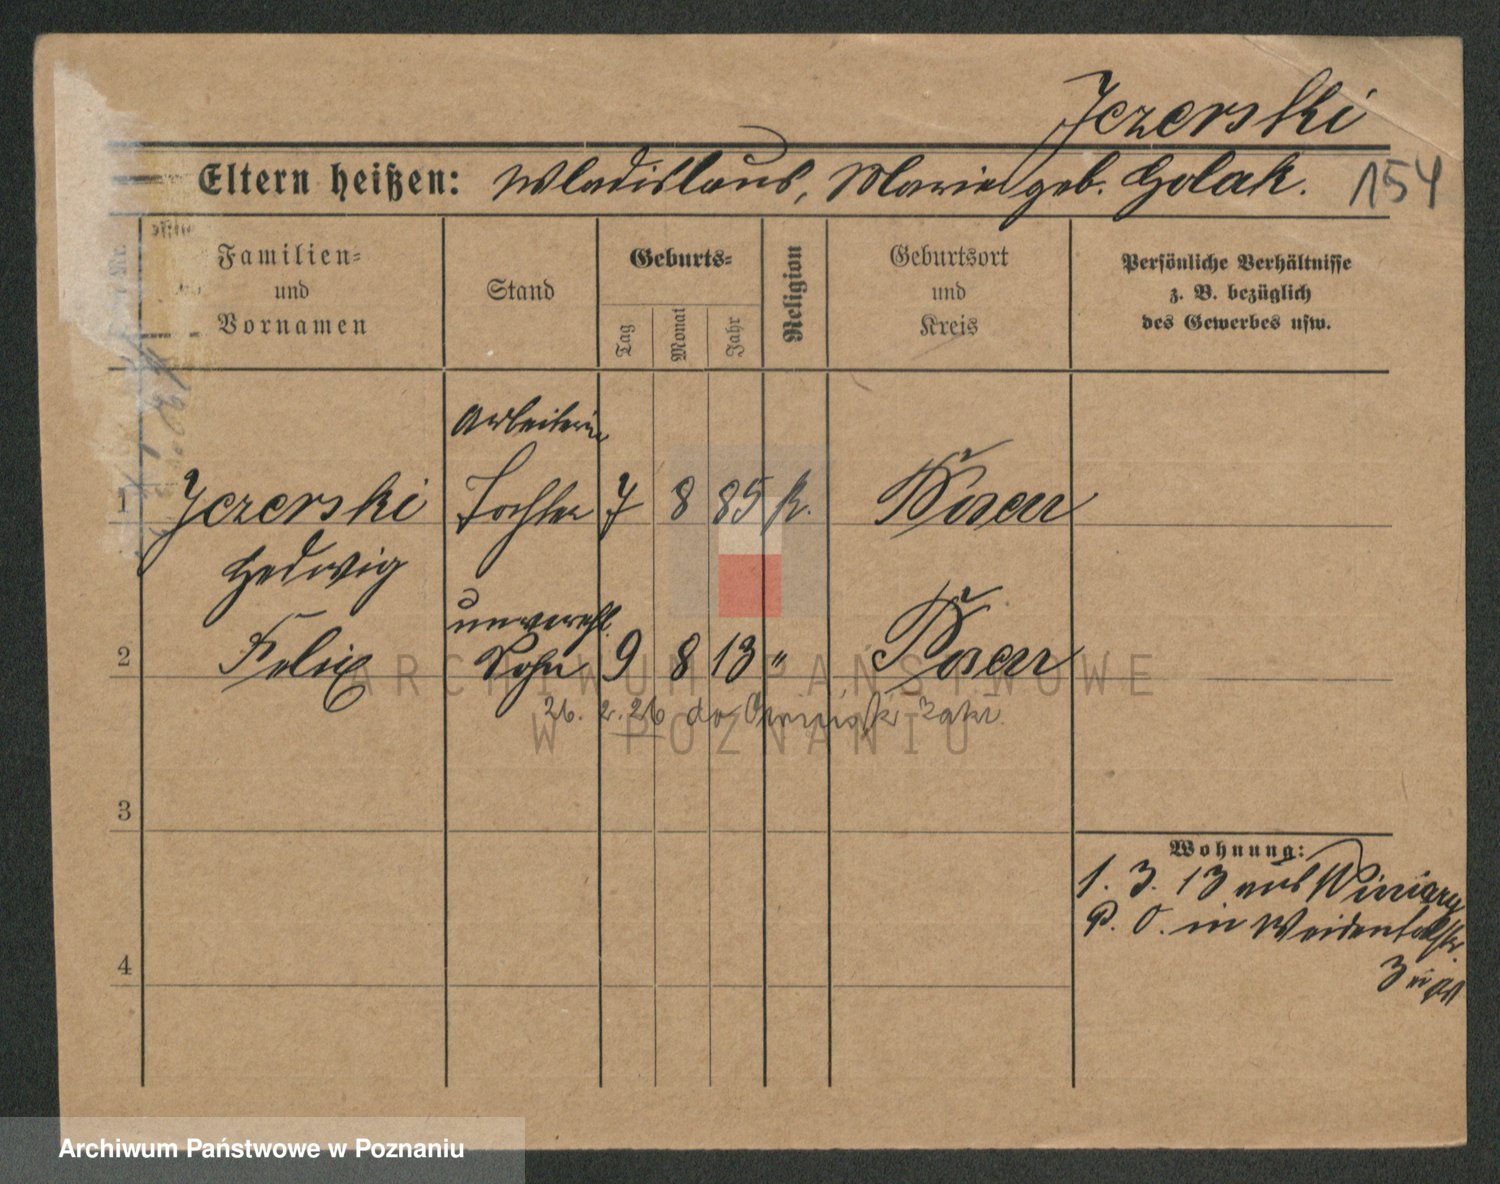 Jezerski
Eltern heißen: Wladislaus, Marie geb. Golak.
154
Familien=
und
Vornamen
Stand
Geburts=
Tag
Monat
Jahr
Religion
Geburtsort
und
Kreis
Persönliche Verhältnisse
z. B. bezüglich
des Gewerbes usw.
Arbeiterin
1 Jezerski Tochter 7 8 85 k. Posen
Hedwig
unverehl.
2 Felix Sohn 9 8 13 " Posen
26. 2. 26 do
3
Wohnung:
1. 3. 13 aus Winiary
P. O. in Weidentalstr.
3
4
ARCHIWUM PAŃSTWOWE
W POZNANIU
Archiwum Państwowe w Poznaniu